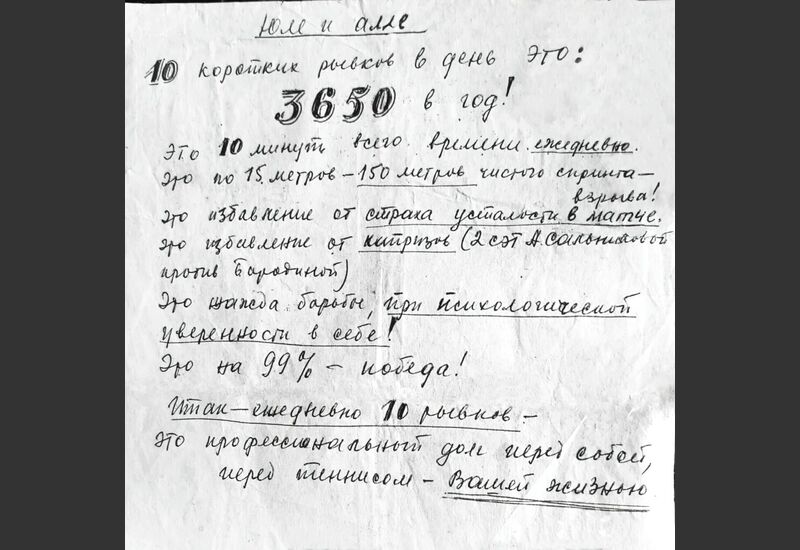 Юле и алле
10 коротких рывков в день это:
3650 в год!
Это 10 минут всего времени ежедневно.
Это по 15 метров – 150 метров чистого спринта –
взрыва!
Это избавление от страха усталости в матче.
Это избавление от капризов (2 сэт А. Сальниковой
против Бародиной)
Это жажда борьбы, при психологической
уверенности в себе!
Это на 99% – победа!
Итак – ежедневно 10 рывков –
Это профессиональный долг перед собой,
перед теннисом – Вашей жизнью